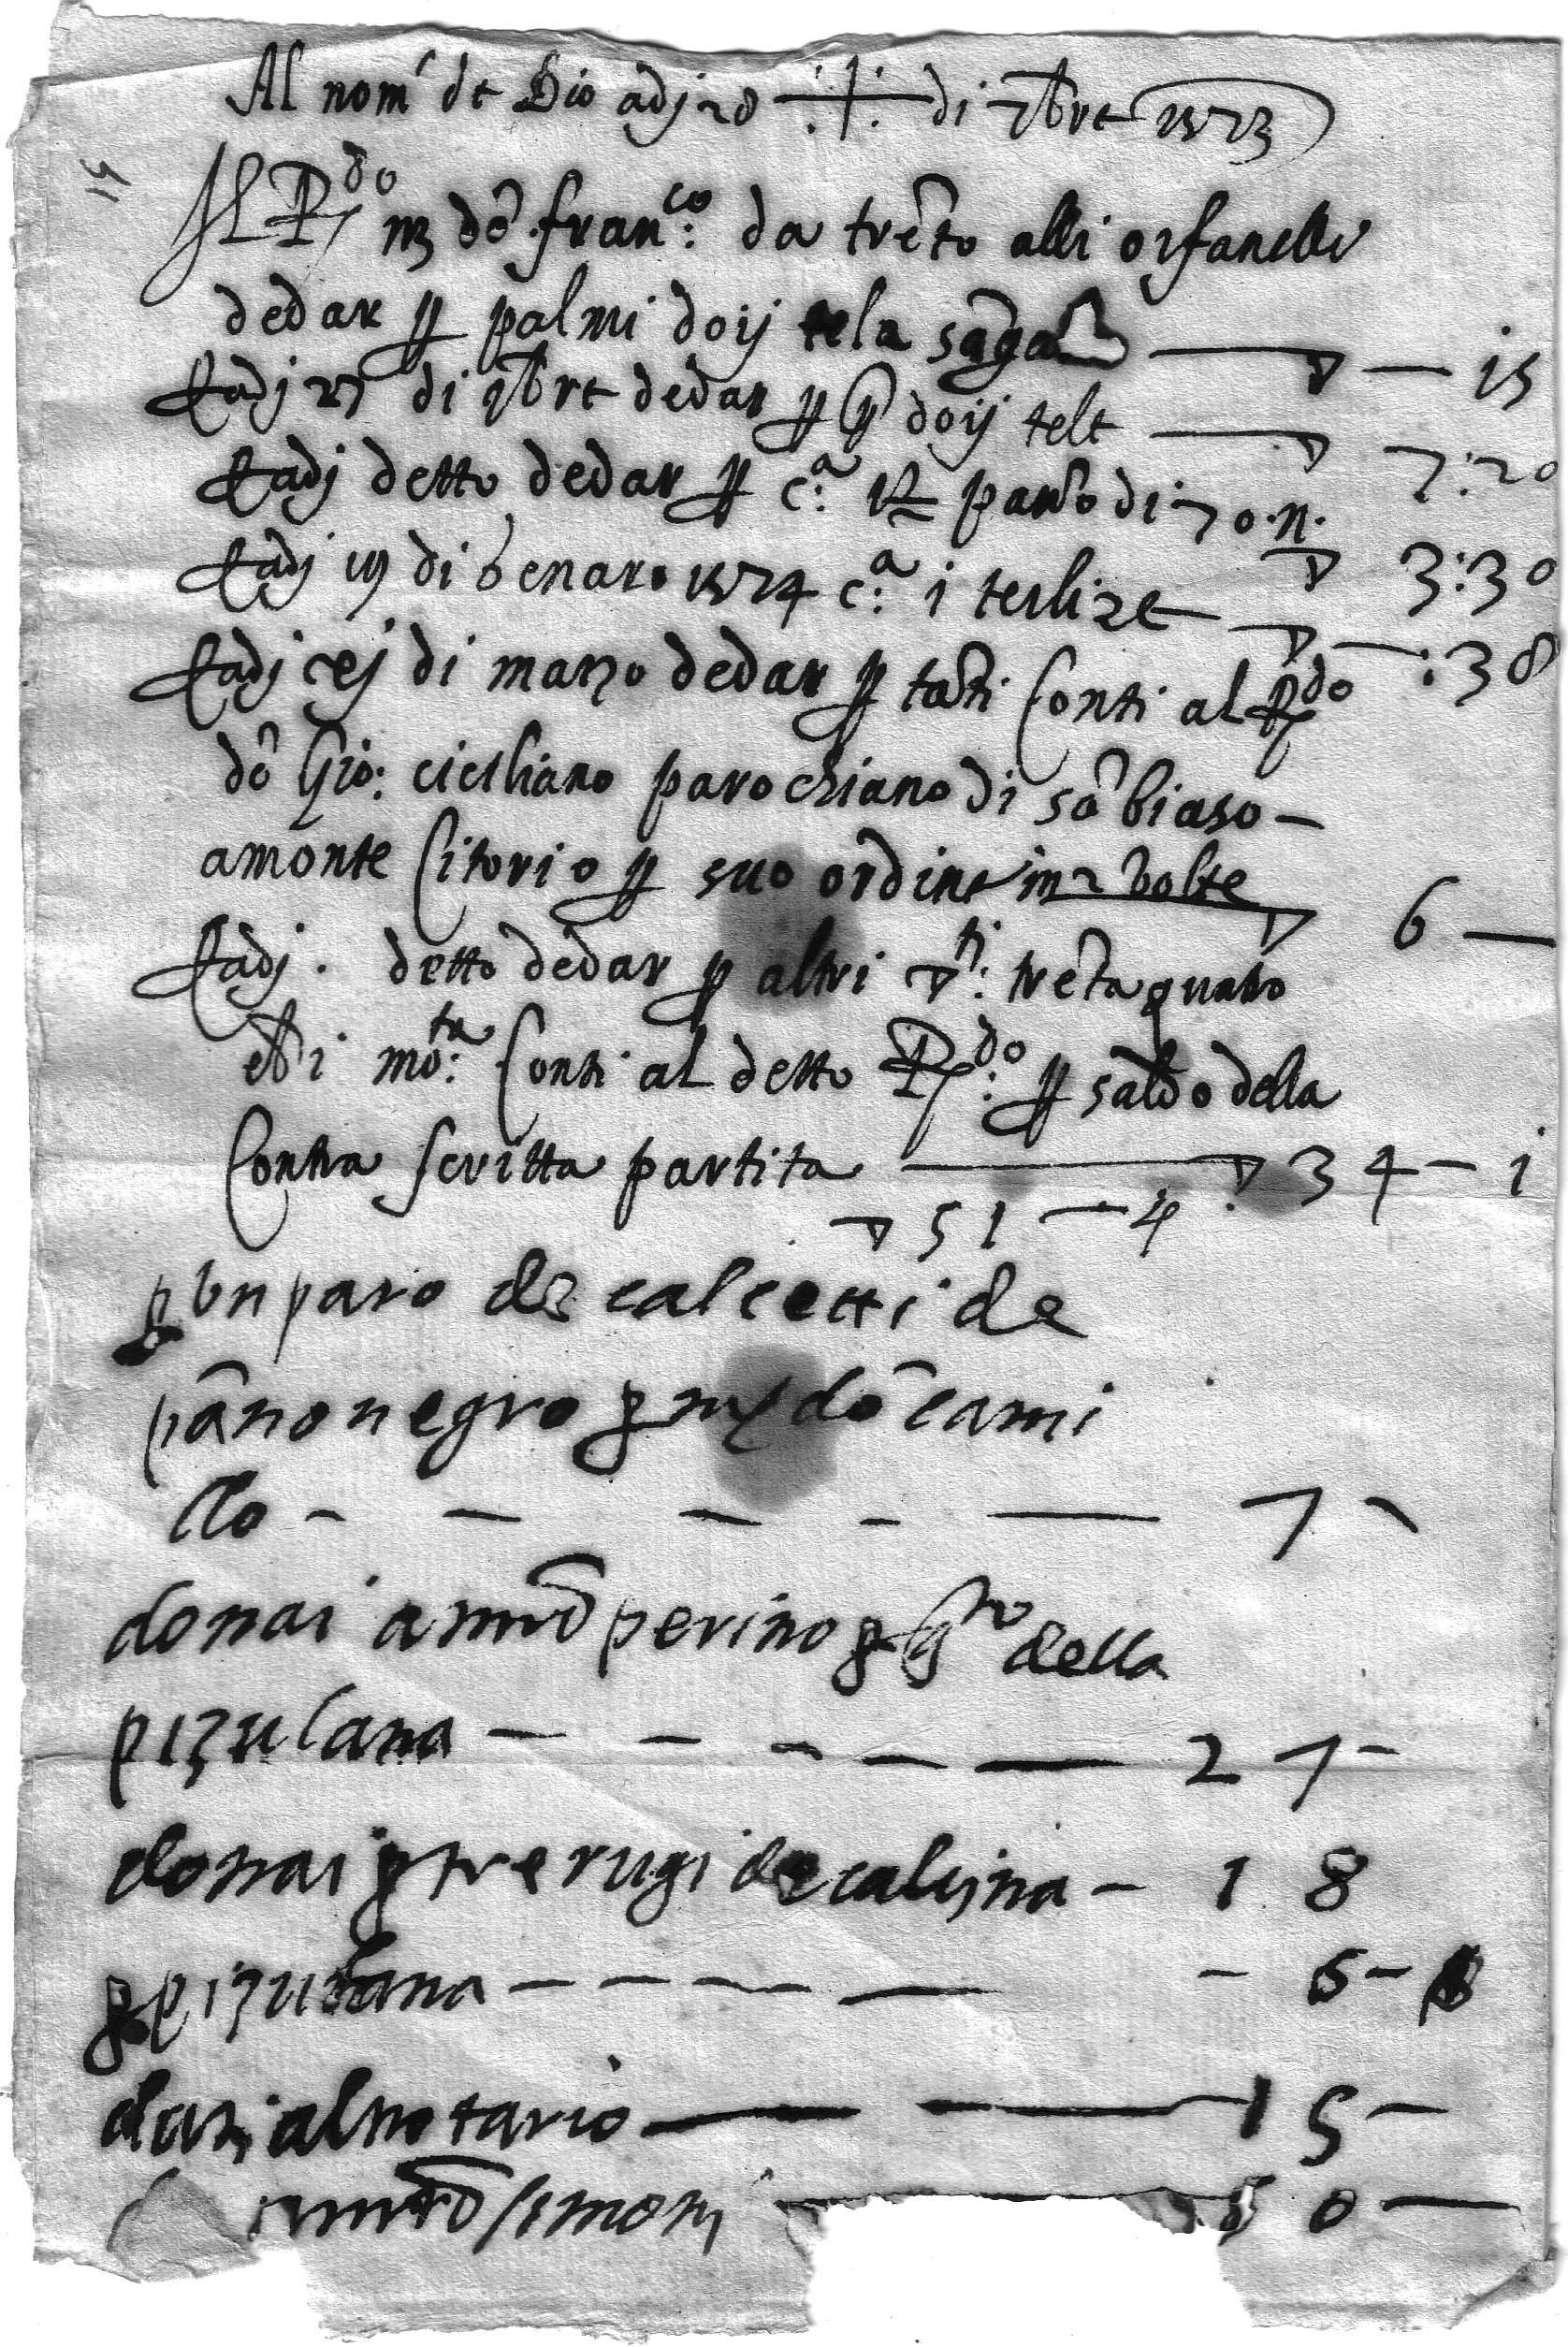 Al nom' de Dio adj 28 di 7bre 1573
Il R.do m dō fran.co da trēto alli orfanelli
dedar p palmi doij tela sāga ▽ — 15
Eadj 27 di 9bre dedar p doij tele ▽ 7:20
Eadj detto dedar p c.a di 70 n. ▽ 3:30
Eadj 19 di Genaro 1574 c.a 1 terlize ▽ — :38
Eadj di marzo dedar p tāti Conti al R.do
dō Gio: cicihano parochiano di sā biaso —
amōnte Citorio p suo ordine in 2 volte ▽ 6 —
Eadj. detto dedar p altri ▽ti: trēta quatro
ebi mō:ta Conti al detto R.do: p saldo della
Contra scritta partita ▽ 34 — 1
▽ 51 — 4
p un paro de calcetti de
pāno negro p m dō cami
lo - - - - — 7 -
donai a mrō perino p della
pizulana - - - - — 2 7 -
donai p tre rugi de calzina - 1 8
p pizulana - - - - — - 6 -
al notario — — 1 5 -
mrō simon — 0 —